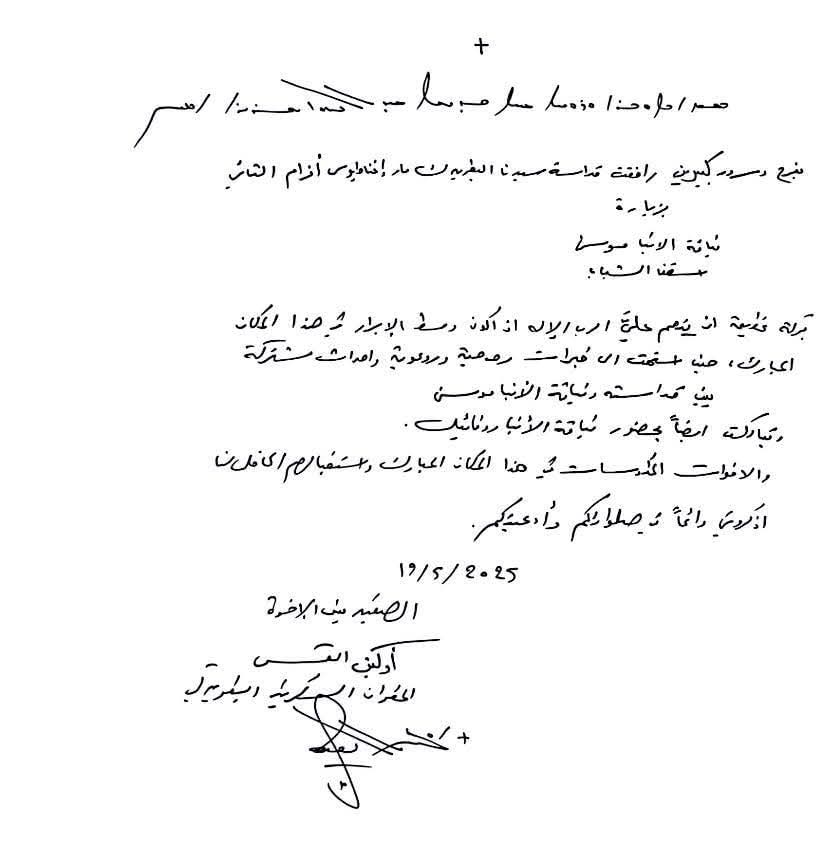 +
بفرح وسرور كبيرين رافقت قداسة سيدنا البطريرك مار إغناطيوس أفرام الثاني
بزيارة
نيافة الانبا موسى
اسقف الشباب
بركة عظيمة ان ينعم عليَّ الرب الاله ان اكون وسط الابرار في هذا المكان
المبارك، حيث استمعت الى خبرات روحية ورعوية واحداث مشتركة
بين قداسته ونيافة الأنبا موسى
وتباركت ايضاً بحضور نيافة الأنبا روفائيل.
والاخوات المكرسات في هذا المكان المبارك واستقبالهم الحافل لنا
اذكروني دائماً في صلواتكم وأدعيتكم.
19/5/2025
الصغير بين الإخوة
أوكين القس
الربان السكرتير البطريركي
+